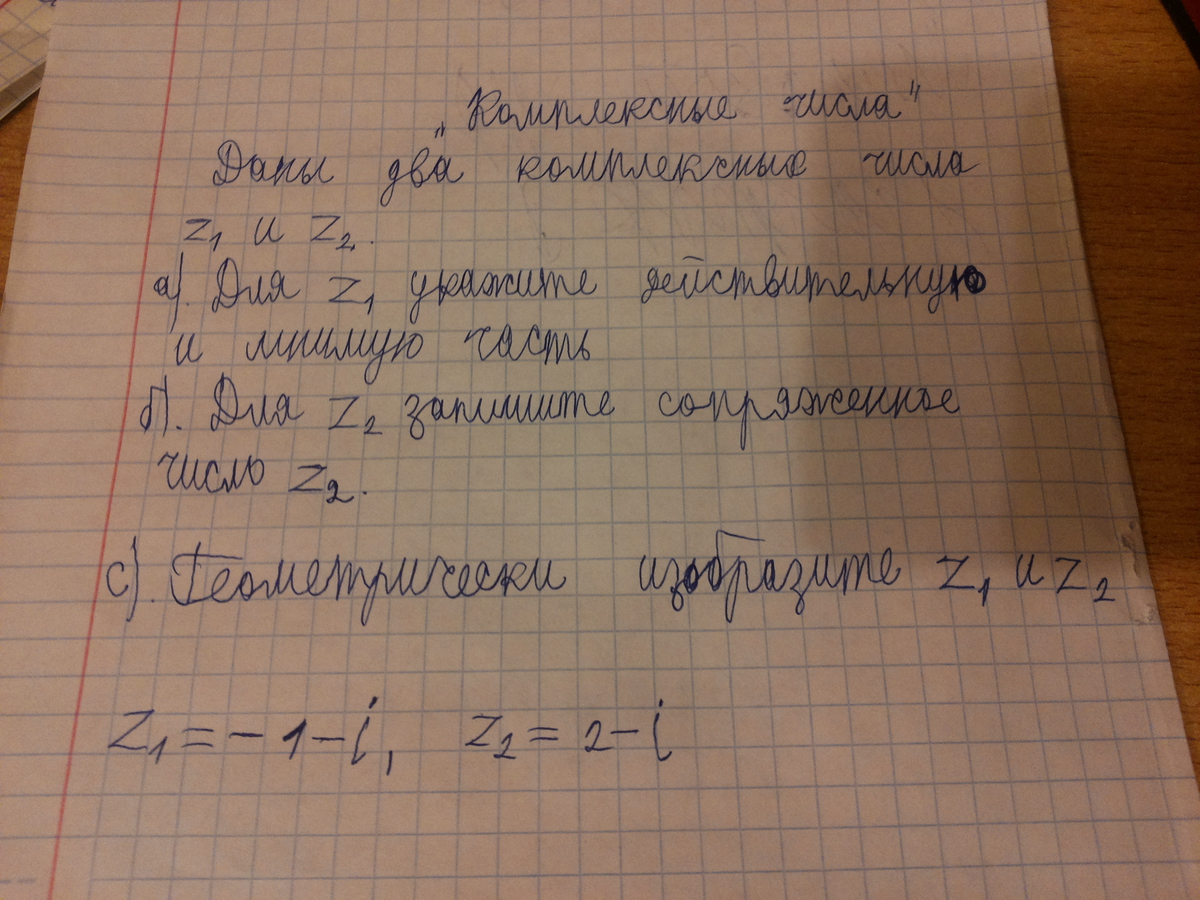 „Комплексные числа"
Даны два комплексных числа
z₁ и z₂.
а). Для z₁ укажите действительную
и мнимую часть
б). Для z₂ запишите сопряженное
число z₂.
с). Геометрически изобразите z₁ и z₂
z₁ = - 1 - i, z₂ = 2 - i